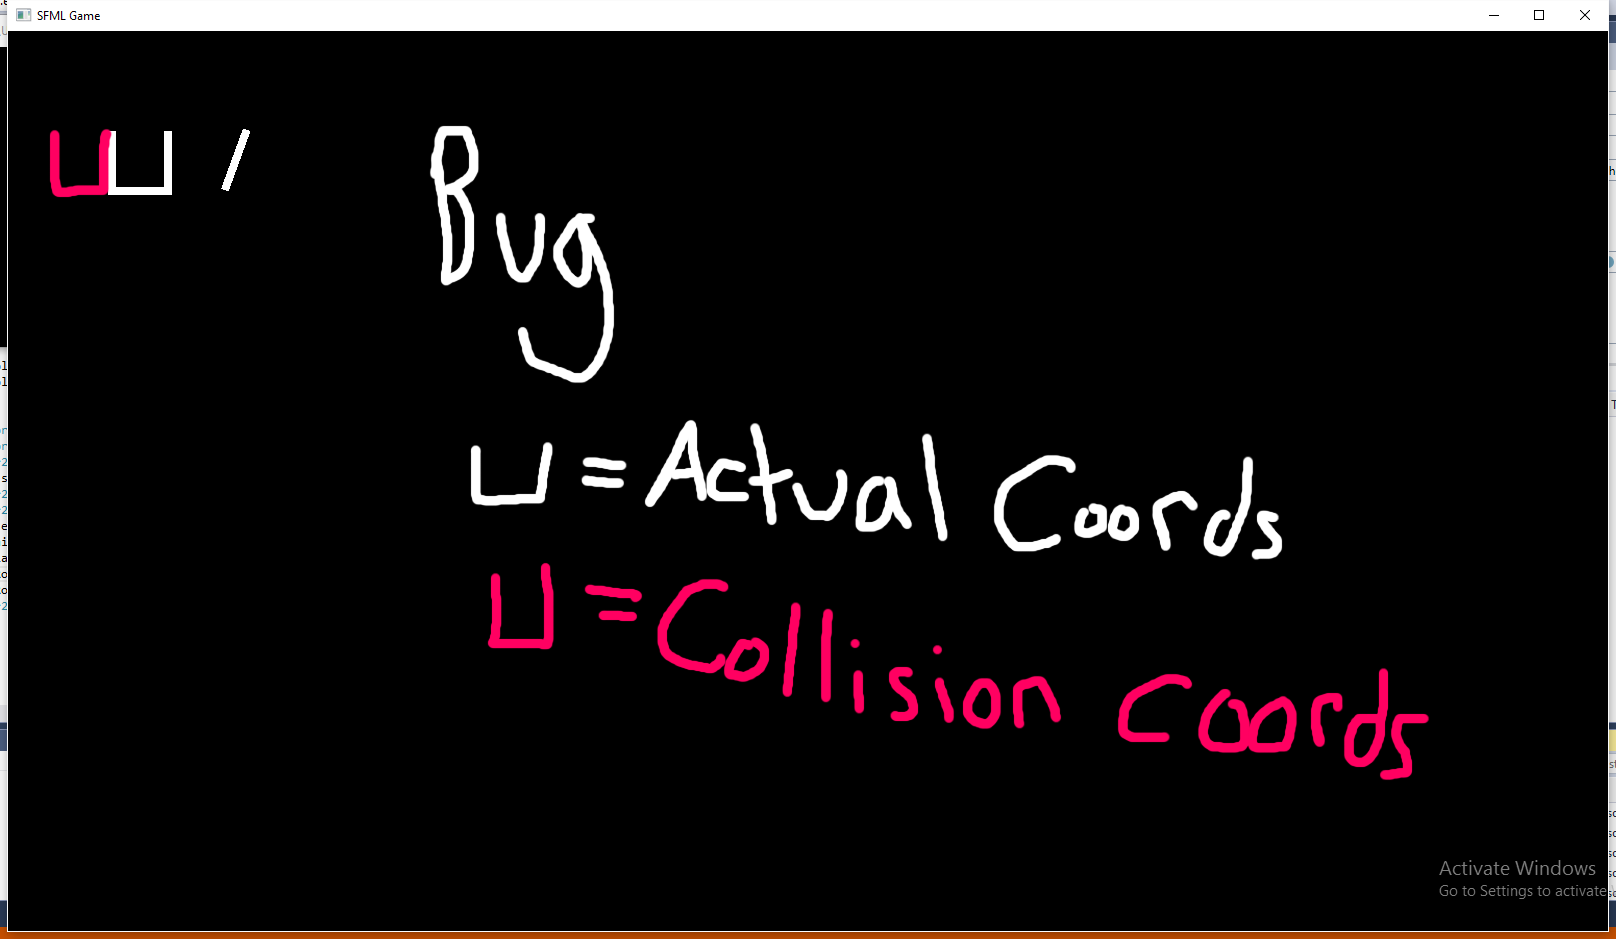 SFML Game
Bug
= Actual Coords
= Collision Coords
Activate Windows
Go to Settings to activate